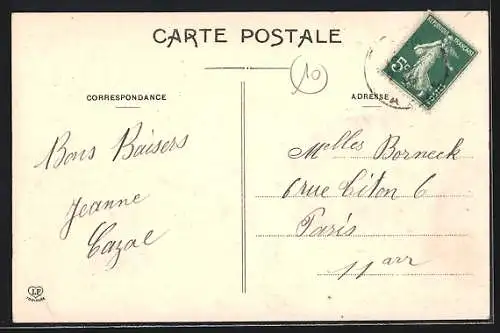 CARTE POSTALE
10
CORRESPONDANCE
ADRESSE
RÉPUBLIQUE FRANÇAISE
5c
POSTES
Bons Baisers
Jeanne
Cazal
Melles Borneck
6 rue Citon 6
Paris
11 arr
LF
TOULOUSE